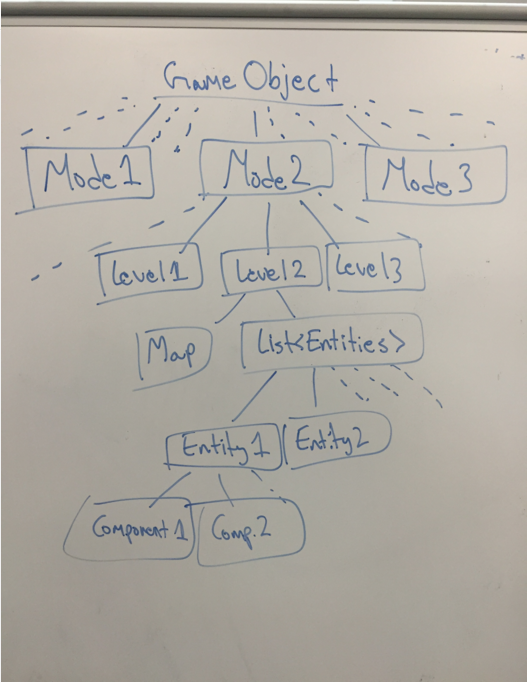 Game Object
Mode1 Mode2 Mode3
Level1 Level2 Level3
Map List<Entities>
Entity1 Entity2
Component 1 Comp.2